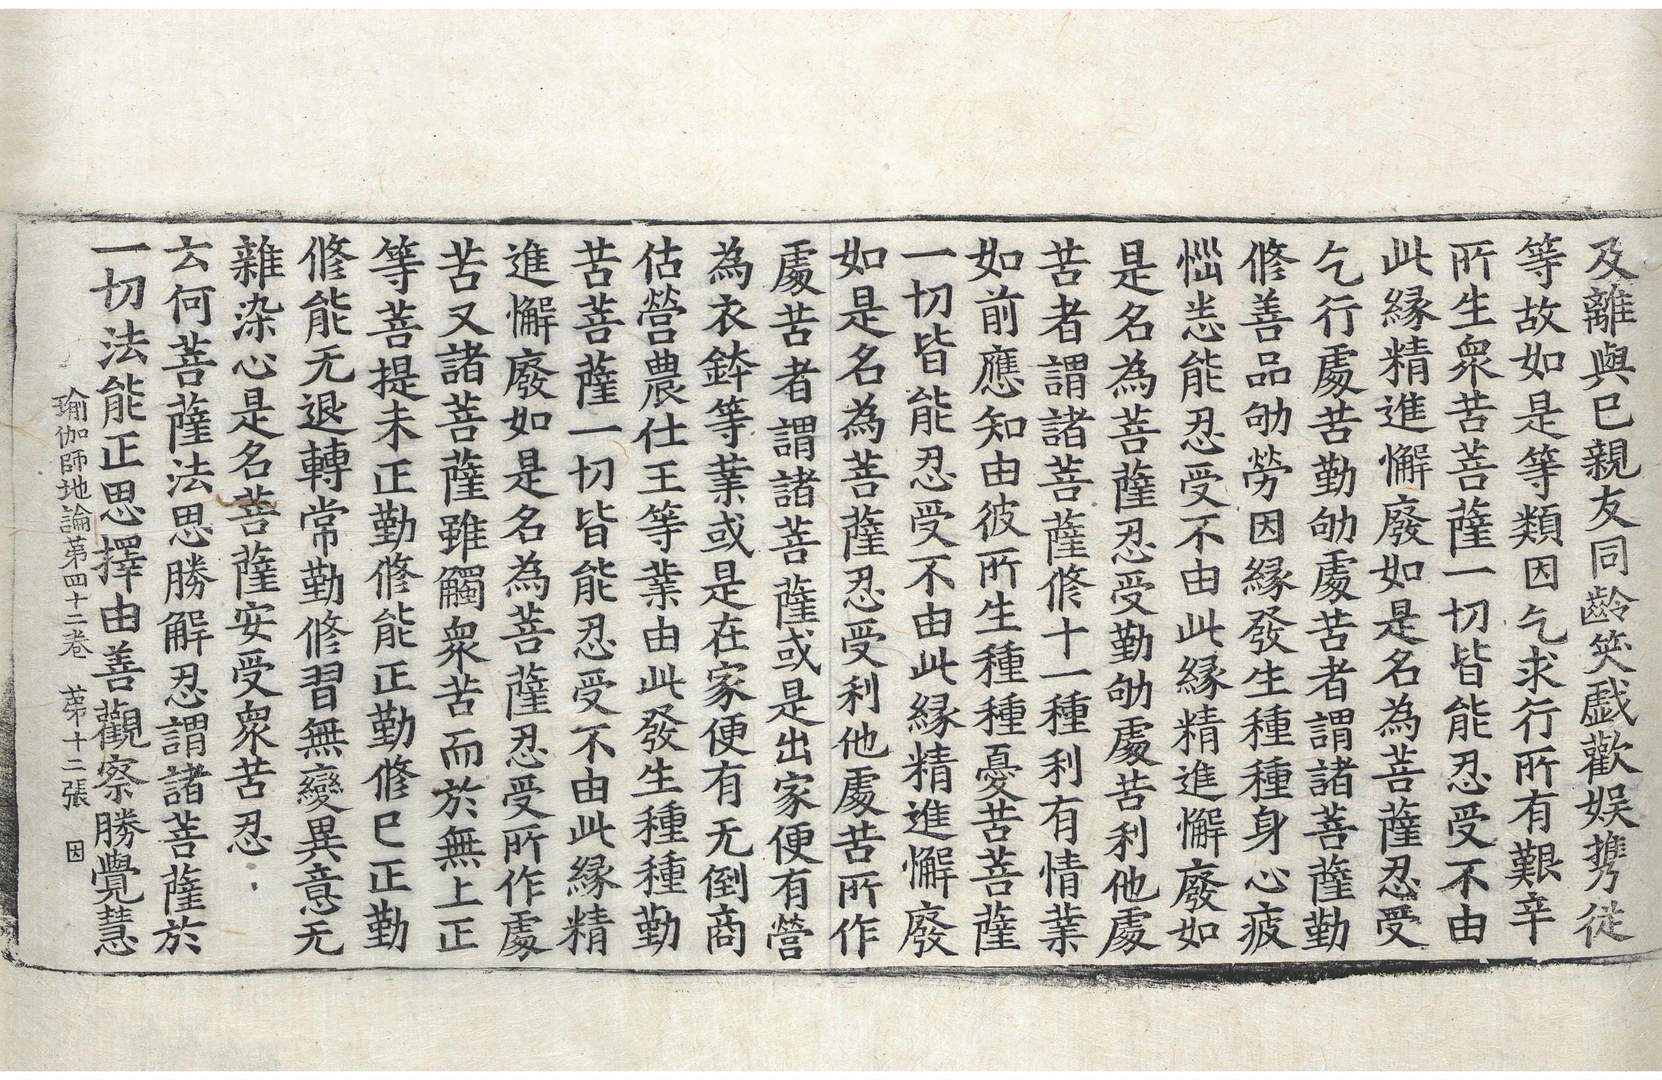 及離與已親友同齡笑戲歡娛携從
等故如是等類因乞求行所有艱辛
所生衆苦菩薩一切皆能忍受不由
此緣精進懈廢如是名為菩薩忍受
乞行處苦勤劬處苦者謂諸菩薩勤
修善品劬勞因緣發生種種身心疲
惱恙能忍受不由此緣精進懈廢如
是名為菩薩忍受勤劬處苦利他處
苦者謂諸菩薩修十一種利有情業
如前應知由彼所生種種憂苦菩薩
一切皆能忍受不由此緣精進懈廢
如是名為菩薩忍受利他處苦所作
處苦者謂諸菩薩或是出家便有營
為衣鉢等業或是在家便有无倒商
估營農仕王等業由此發生種種勤
苦菩薩一切皆能忍受不由此緣精
進懈廢如是名為菩薩忍受所作處
苦又諸菩薩雖觸衆苦而於無上正
等菩提未正勤修能正勤修已正勤
修能无退轉常勤修習無變異意无
雜染心是名菩薩安受衆苦忍
云何菩薩法思勝解忍謂諸菩薩於
一切法能正思擇由善觀察勝覺慧
瑜伽師地論苐四十二卷 苐十二張 因